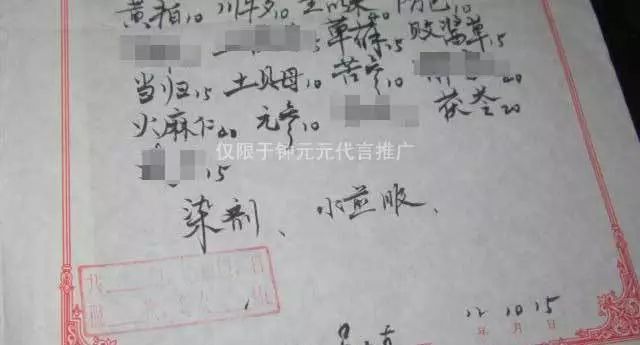 黄柏10 川牛夕10
萆薢15 败酱草15
当归15 土贝母10 苦参10 20
火麻仁20 元参10 茯苓20
仅限于钟元元代言推广
15
柒剂、水煎服、
12 10 15
年 月 日